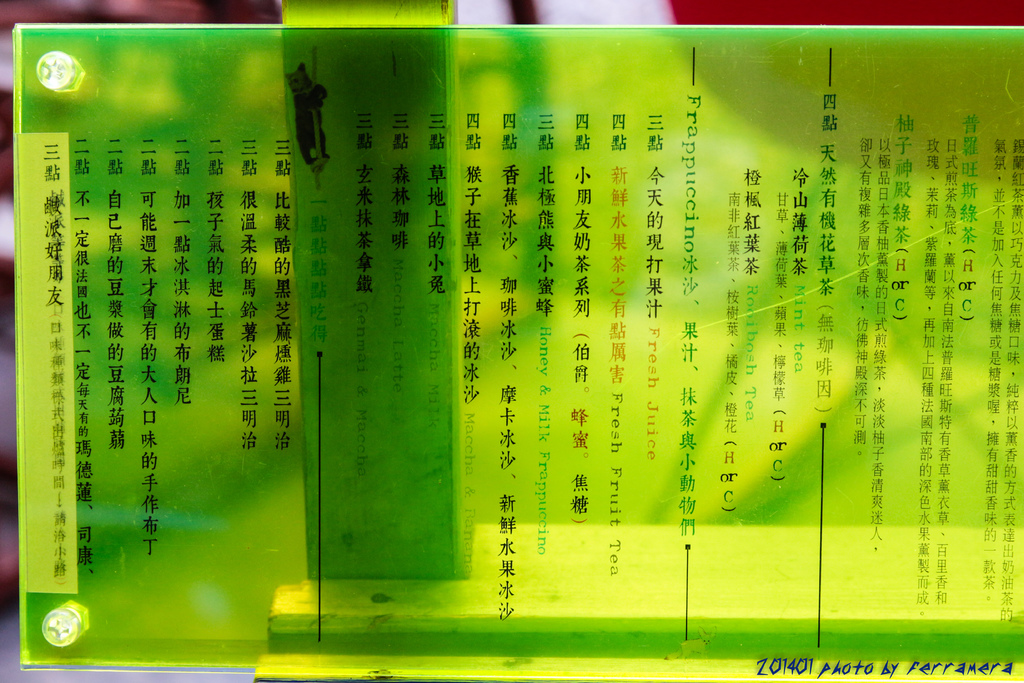 錫蘭紅茶薰以巧克力及焦糖口味，純粹以薰香的方式表達出奶油茶的
氣氛，並不是加入任何焦糖或是糖漿喔，擁有甜甜香味的一款茶。
普羅旺斯綠茶(H or C)
日式煎茶為底，薰以來自南法普羅旺斯特有香草薰衣草、百里香和
玫瑰、茉莉、紫羅蘭等，再加上四種法國南部的深色水果薰製而成。
柚子神殿綠茶(H or C)
以極品日本香柚薰製的日式煎綠茶，淡淡柚子香清爽迷人，
卻又有複雜多層次香味，彷彿神殿深不可測。
四點 天然有機花草茶(無咖啡因)
冷山薄荷茶 Mint tea
甘草、薄荷葉、蘋果、檸檬草(H or C)
橙楓紅葉茶 Rooibosh Tea
南非紅葉茶、桉樹葉、橘皮、橙花(H or C)
Frappuccino冰沙、果汁、抹茶與小動物們
三點 今天的現打果汁 Fresh Juice
四點 新鮮水果茶之有點厲害 Fresh Fruit Tea
四點 小朋友奶茶系列(伯爵。蜂蜜。焦糖)
三點 北極熊與小蜜蜂 Honey & Milk Frappuccino
四點 香蕉冰沙、咖啡冰沙、摩卡冰沙、新鮮水果冰沙
四點 猴子在草地上打滾的冰沙 Maccha &
三點 草地上的小兔 Maccha Milk
三點 森林咖啡 Maccha Latte
三點 玄米抹茶拿鐵 Genmai & Maccha
一點點點吃得
三點 比較酷的黑芝麻燻雞三明治
三點 很溫柔的馬鈴薯沙拉三明治
二點 孩子氣的起士蛋糕
二點 加一點冰淇淋的布朗尼
二點 可能週末才會有的大人口味的手作布丁
二點 自己磨的豆漿做的豆腐蒟蒻
二點 不一定很法國也不一定每天有的瑪德蓮、司康、
三點 鹹派好朋友
201401 photo by ferramera